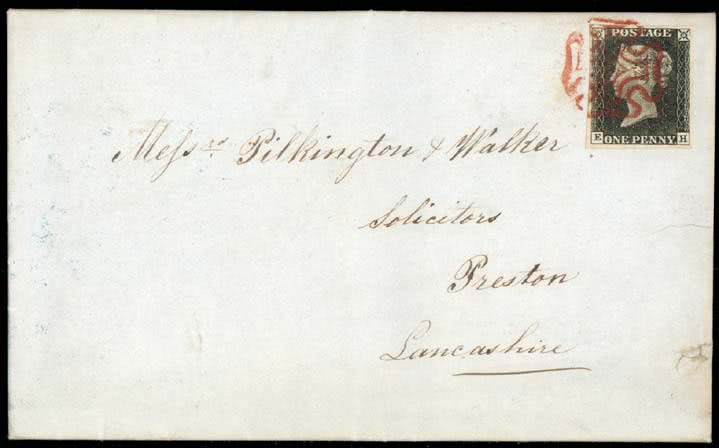 POSTAGE
E ONE PENNY H
Messrs Pilkington & Walker
Solicitors
Preston
Lancashire